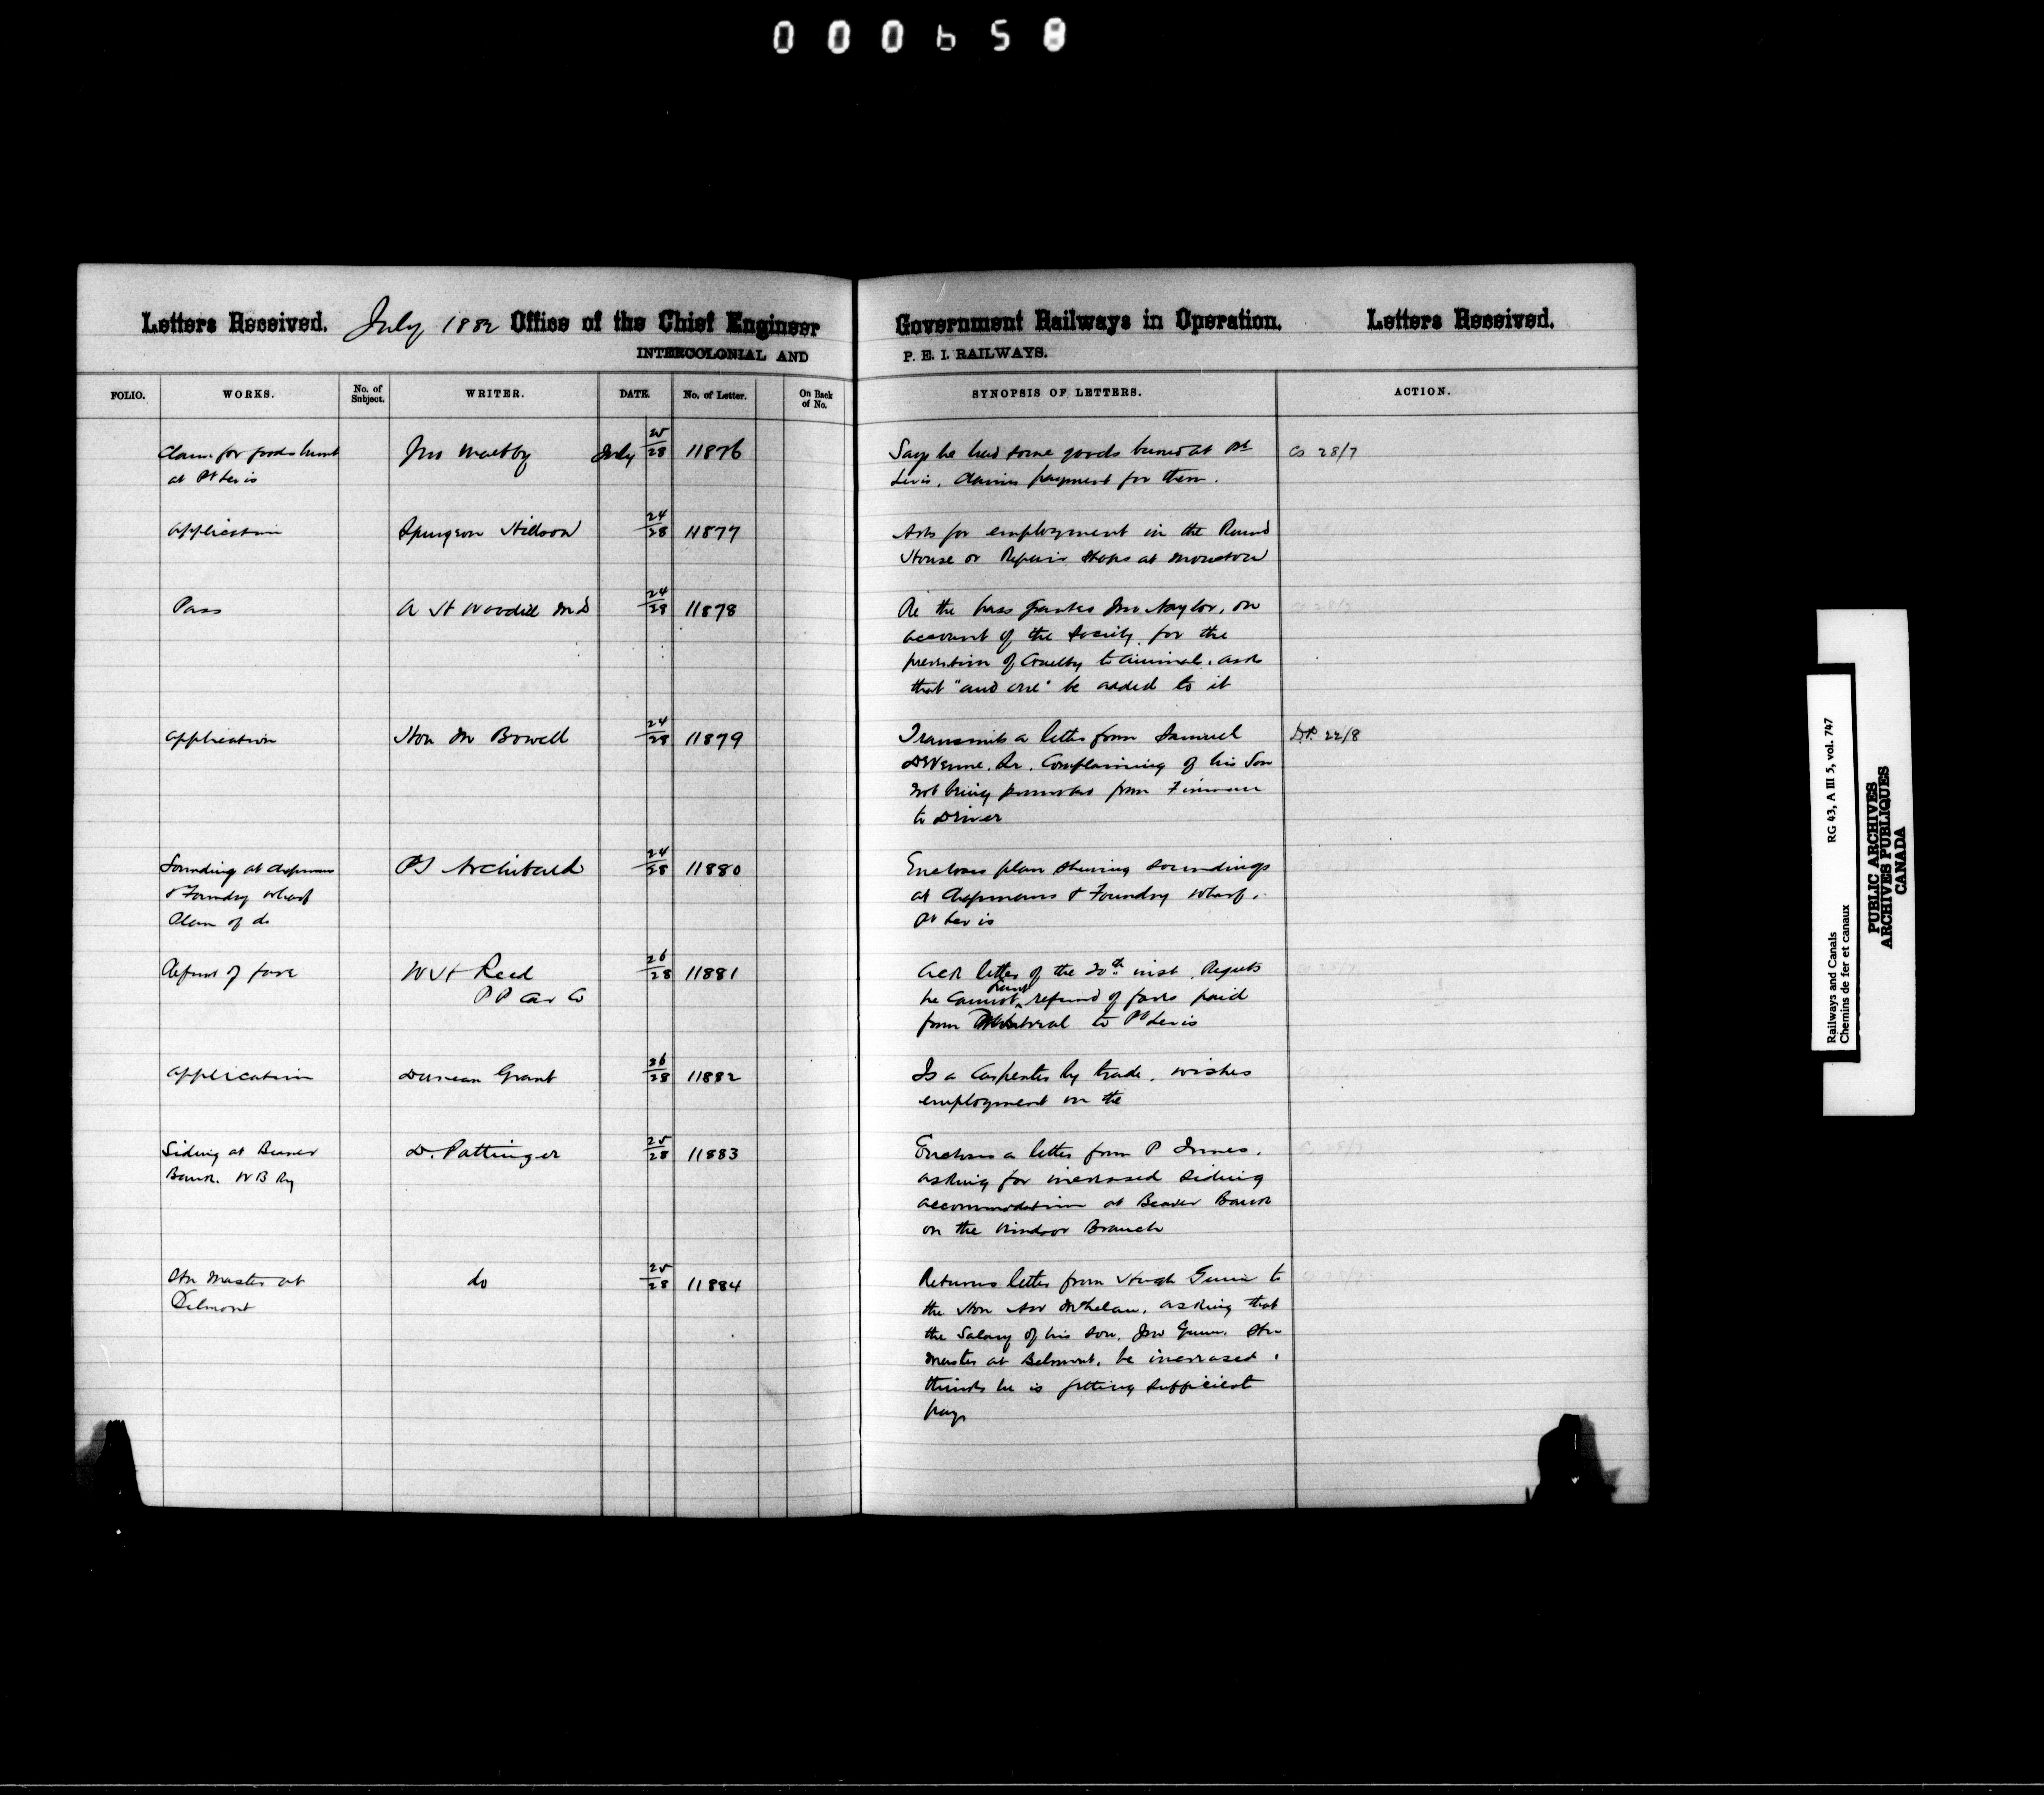 000658
Letters Received. July 1882 Office of the Chief Engineer Government Railways in Operation. Letters Received.
INTERCOLONIAL AND P. E. I. RAILWAYS.
FOLIO. WORKS. No. of Subject. WRITER. DATE. No. of Letter. On Back of No. SYNOPSIS OF LETTERS. ACTION.
Claim for goods burnt Jno Maltby July 25/28 11876 Says he had some goods burned at Pt CS 28/7
at Pt Levis Levis, Claims payment for them.
Application Spurgeon Hillson 24/28 11877 Asks for employment in the Round
House or Repair Shops at Moncton
Pass A H Woodill MD 24/28 11878 Re the pass granted Jno Naylor, on
account of the Society for the
prevention of Cruelty to animals. asks
that "and one" be added to it
Application Hon M Bowell 24/28 11879 Transmits a letter from Samuel DP. 22/8
Sr. Complaining of his Son
not being promoted from Fireman
to Driver
Sounding at Chapmans PS Archibald 24/28 11880 Encloses plan shewing soundings
& Foundry Wharf at Chapmans & Foundry Wharf.
Plan of do Pt Levis
Refund of fare W H Reed 26/28 11881 Ack letter of the 20th inst. Regrets
P P Car Co he cannot grant refund of fares paid
from Montreal to Pt Levis
Application Duncan Grant 26/28 11882 Is a Carpenter by trade. wishes
employment on the
Siding at Beaver D. Pottinger 25/28 11883 Encloses a letter from P Innes.
Bank. W B Ry asking for increased siding
accommodation at Beaver Bank
on the Windsor Branch
Stn Master at do 25/28 11884 Returns letter from Hugh Gunn to
Belmont the Hon McLelan. asking that
the Salary of his son, Jno Gunn. Stn
Master at Belmont. be increased.
thinks he is getting sufficient
pay
Railways and Canals RG 43, A III 5, vol. 747
Chemins de fer et canaux
PUBLIC ARCHIVES
ARCHIVES PUBLIQUES
CANADA